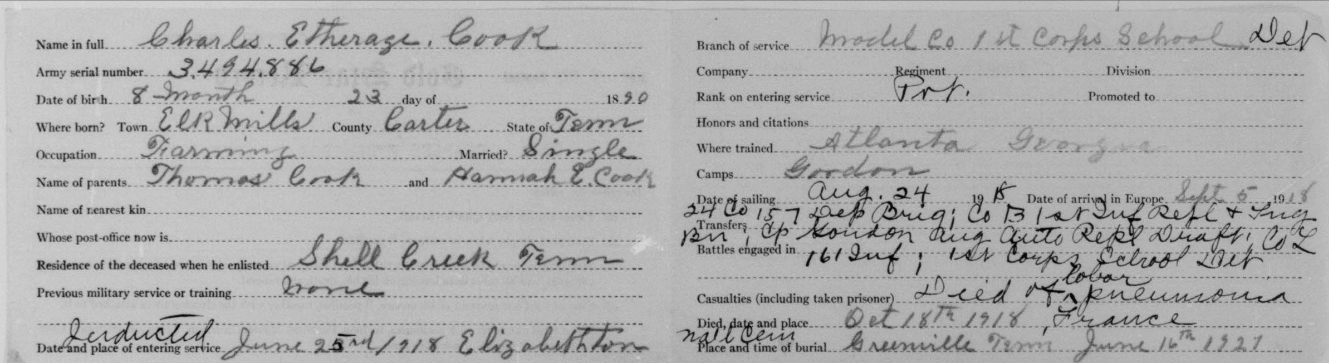 Name in full Charles. Etherage. Cook
Army serial number 3,494,886
Date of birth 8 Month 23 day of 1890
Where born? Town Elk Mills County Carter State of Tenn
Occupation Farming Married? Single
Name of parents Thomas Cook and Hannah E. Cook
Name of nearest kin
Whose post-office now is
Residence of the deceased when he enlisted Shell Creek Tenn
Previous military service or training None
Inducted
Date and place of entering service June 23rd/1918 Elizabethton
Branch of service Model Co 1st Corps School Det
Company Regiment Division
Rank on entering service Pvt. Promoted to
Honors and citations
Where trained Atlanta Georgia
Camps Gordon
Date of sailing Aug. 24 1918 Date of arrival in Europe Sept 5 1918
24 Co 157 Dep Brig; Co B 1st Inf Repl & Tng
Transfers
Bn; Cp Gordon Aug Auto Repl Draft; Co L
Battles engaged in 161 Inf; 1st Corps School Det
Casualties (including taken prisoner) Died of lobar pneumonia
Died, date and place Oct 18th 1918, France
Natl Cem
Place and time of burial Greenville Tenn June 16th 1921